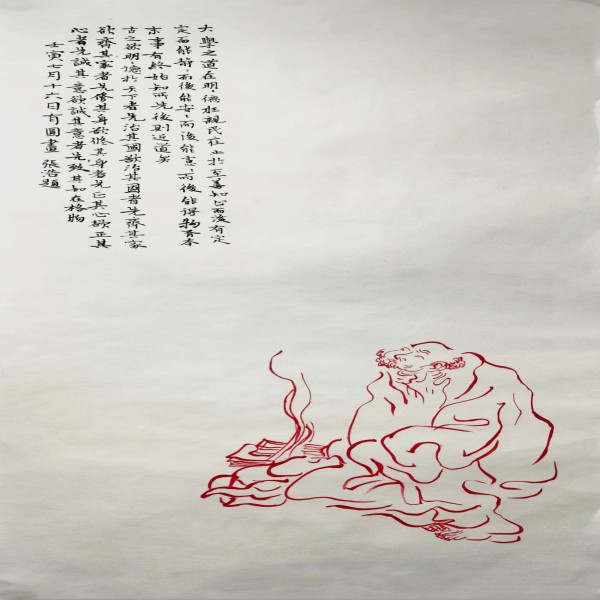 大學之道在明〻德在親民在止於至善知止而後有定
定而能靜〻而後能安〻而後能慮〻而後能得物有本
末事有終始知所先後則近道矣
古之欲明〻德於天下者先治其國欲治其國者先齊其家
欲齊其家者先修其身欲修其身者先正其心欲正其
心者先誠其意欲誠其意者先致其知在格物
壬寅七月十六日育圖畫 張浩題